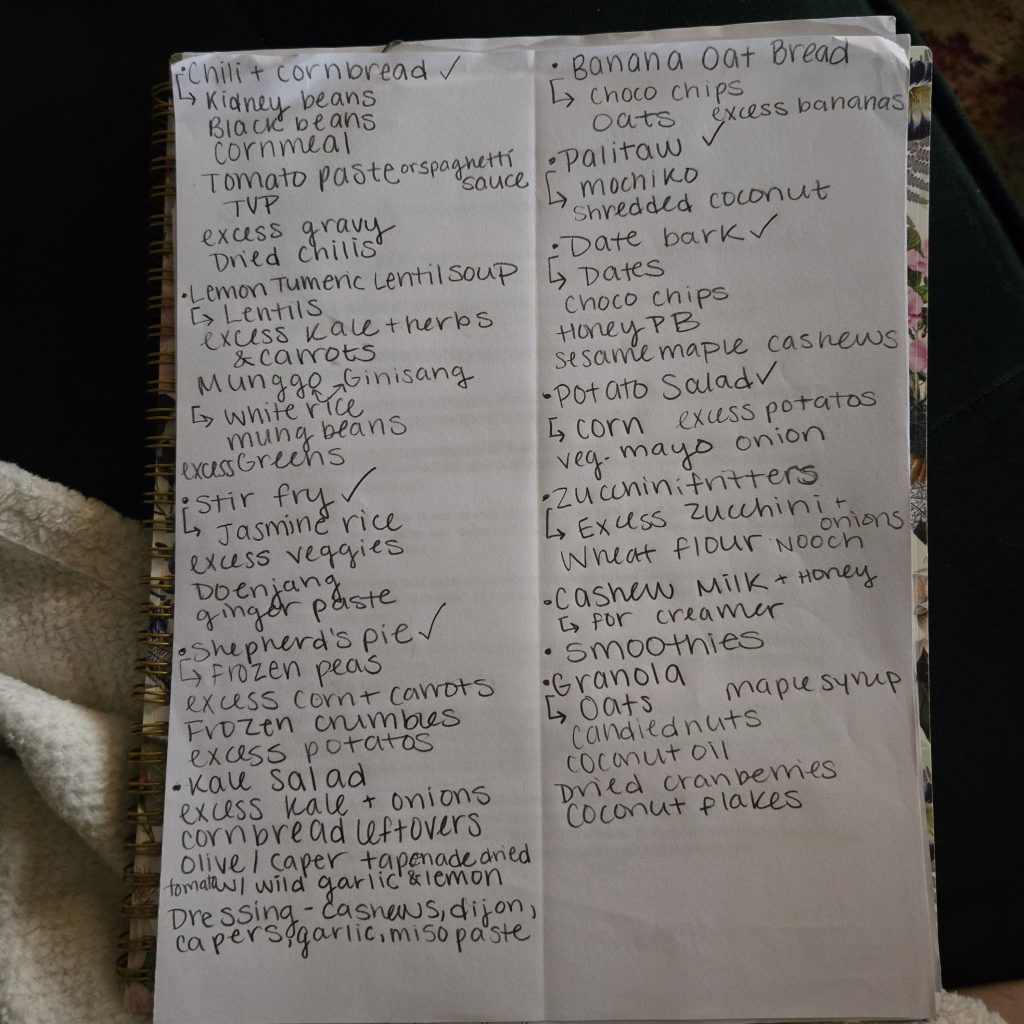 • Chili + cornbread ✓
↳ Kidney beans
Black beans
cornmeal
Tomato paste or spaghetti sauce
TVP
excess gravy
Dried chilis
• Lemon Tumeric Lentil soup
↳ Lentils
excess kale + herbs
& carrots
Munggo Ginisang
↳ white rice
mung beans
excess Greens
• Stir fry ✓
↳ Jasmine rice
excess veggies
Doenjang
ginger paste
• Shepherd's pie ✓
↳ Frozen peas
excess corn + carrots
Frozen crumbles
excess potatos
• Kale Salad
excess kale + onions
cornbread leftovers
olive / caper tapenade dried
tomato w/ wild garlic & lemon
Dressing - cashews, dijon,
capers, garlic, miso paste
• Banana Oat Bread
↳ choco chips
oats excess bananas
• Palitaw ✓
↳ mochiko
shredded coconut
• Date bark ✓
↳ Dates
choco chips
Honey PB
sesame maple cashews
• Potato Salad ✓
↳ corn excess potatos
veg. mayo onion
• Zucchini fritters
↳ Excess zucchini + onions
Wheat flour Nooch
• Cashew Milk + Honey
↳ for creamer
• Smoothies
• Granola
↳ Oats maple syrup
candied nuts
coconut oil
Dried cranberries
coconut flakes